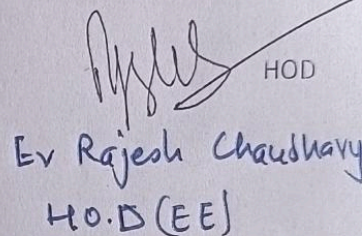 HOD
Er Rajesh Chaudhary
H.O.D (EE)